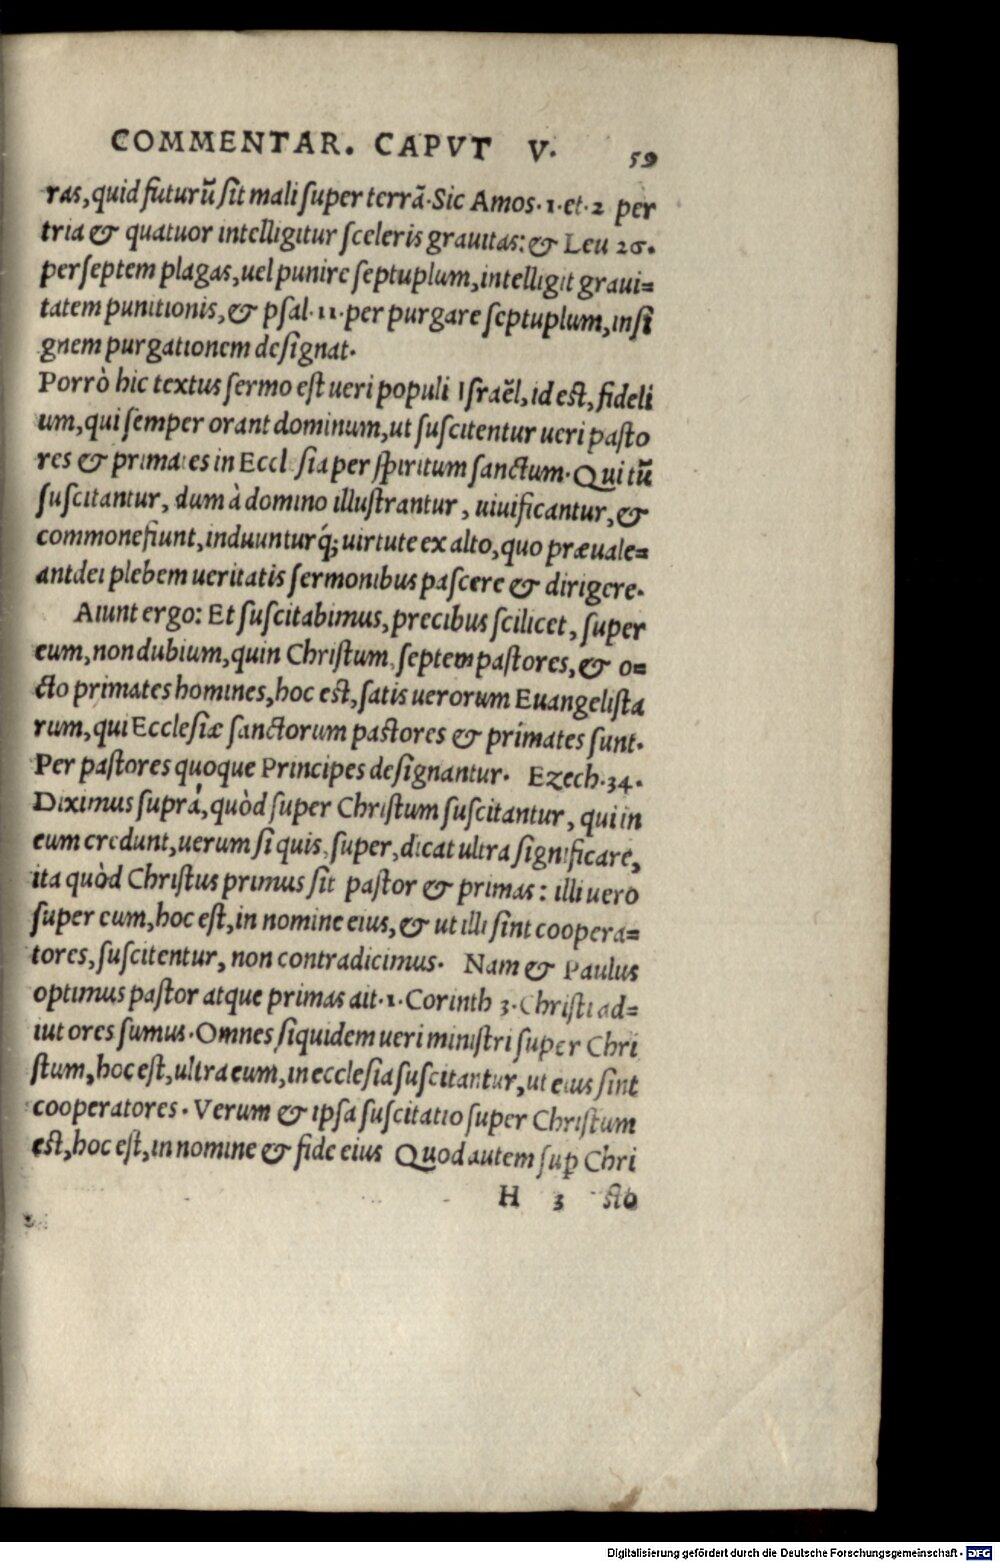 COMMENTAR. CAPVT V. 59
ras, quid futurũ sit mali super terrã. Sic Amos. 1. et. 2 per
tria & quatuor intelligitur sceleris grauitas: & Leu 26.
per septem plagas, uel punire septuplum, intelligit graui=
tatem punitionis, & psal. 11. per purgare septuplum, insi
gnem purgationem designat.
Porrò hic textus sermo est ueri populi Israẽl, id est, fideli
um, qui semper orant dominum, ut suscitentur ueri pasto
res & primates in Eccl sia per spiritum sanctum. Qui tũ
suscitantur, dum à domino illustrantur, uiuificantur, &
commonefiunt, induuntur q́; uirtute ex alto, quo præuale=
ant dei plebem ueritatis sermonibus pascere & dirigere.
Aiunt ergo: Et suscitabimus, precibus scilicet, super
eum, non dubium, quin Christum, septem pastores, & o=
cto primates homines, hoc est, satis uerorum Euangelista
rum, qui Ecclesiæ sanctorum pastores & primates sunt.
Per pastores quoque Principes designantur. Ezech. 34.
Diximus suprà, quòd super Christum suscitantur, qui in
eum credunt, uerum si quis, super, dicat ultra significare,
ita quòd Christus primus sit pastor & primas: illi uero
super eum, hoc est, in nomine eius, & ut illi sint coopera=
tores, suscitentur, non contradicimus. Nam & Paulus
optimus pastor atque primas ait. 1. Corinth 3. Christi ad=
iutores sumus. Omnes siquidem ueri ministri super Chri
stum, hoc est, ultra eum, in ecclesia suscitantur, ut eius sint
cooperatores. Verum & ipsa suscitatio super Christum
est, hoc est, in nomine & fide eius Quod autem sup̱ Chri
H 3 sto
Digitalisierung gefördert durch die Deutsche Forschungsgemeinschaft - DFG